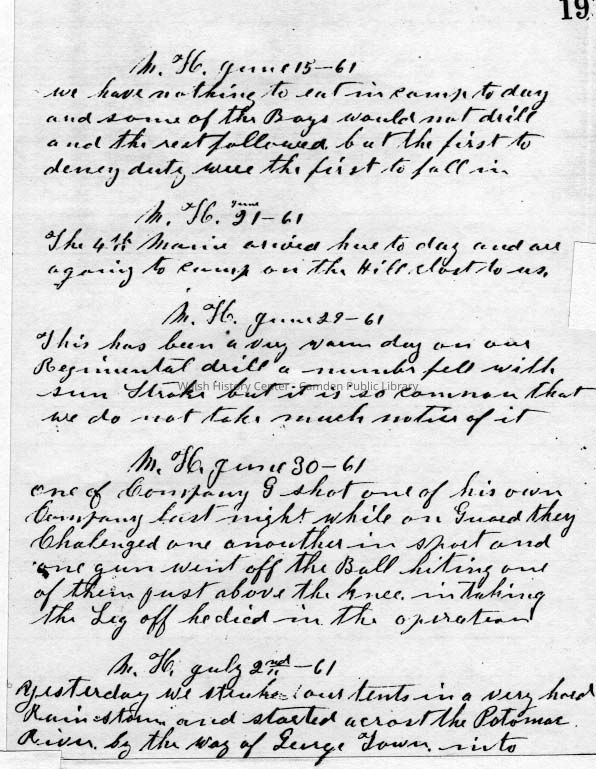 19
M. H. June 15-61
we have nothing to eat in camp to day
and some of the Boys would not drill
and the rest followed but the first to
deney duty were the first to fall in
M. H. June 21-61
The 4th Maine arived here to day and are
agoing to camp on the Hill clost to us.
M. H. June 29-61
This has been a very warm day on our
Regimental drill a number fell with
sun Stroke but it is so common that
Walsh History Center - Camden Public Library
we do not take much notice of it
M. H. June 30-61
one of Company G shot one of his own
Company last night while on Guard they
Chalenged one anouther in sport and
one gun went off the Ball hiting one
of them just above the knee in taking
the Leg off he died in the operation
M. H. July 2nd-61
Yesterday we struke our tents in a very hard
Rain storm and started across the Potomac
River by the way of George Town into